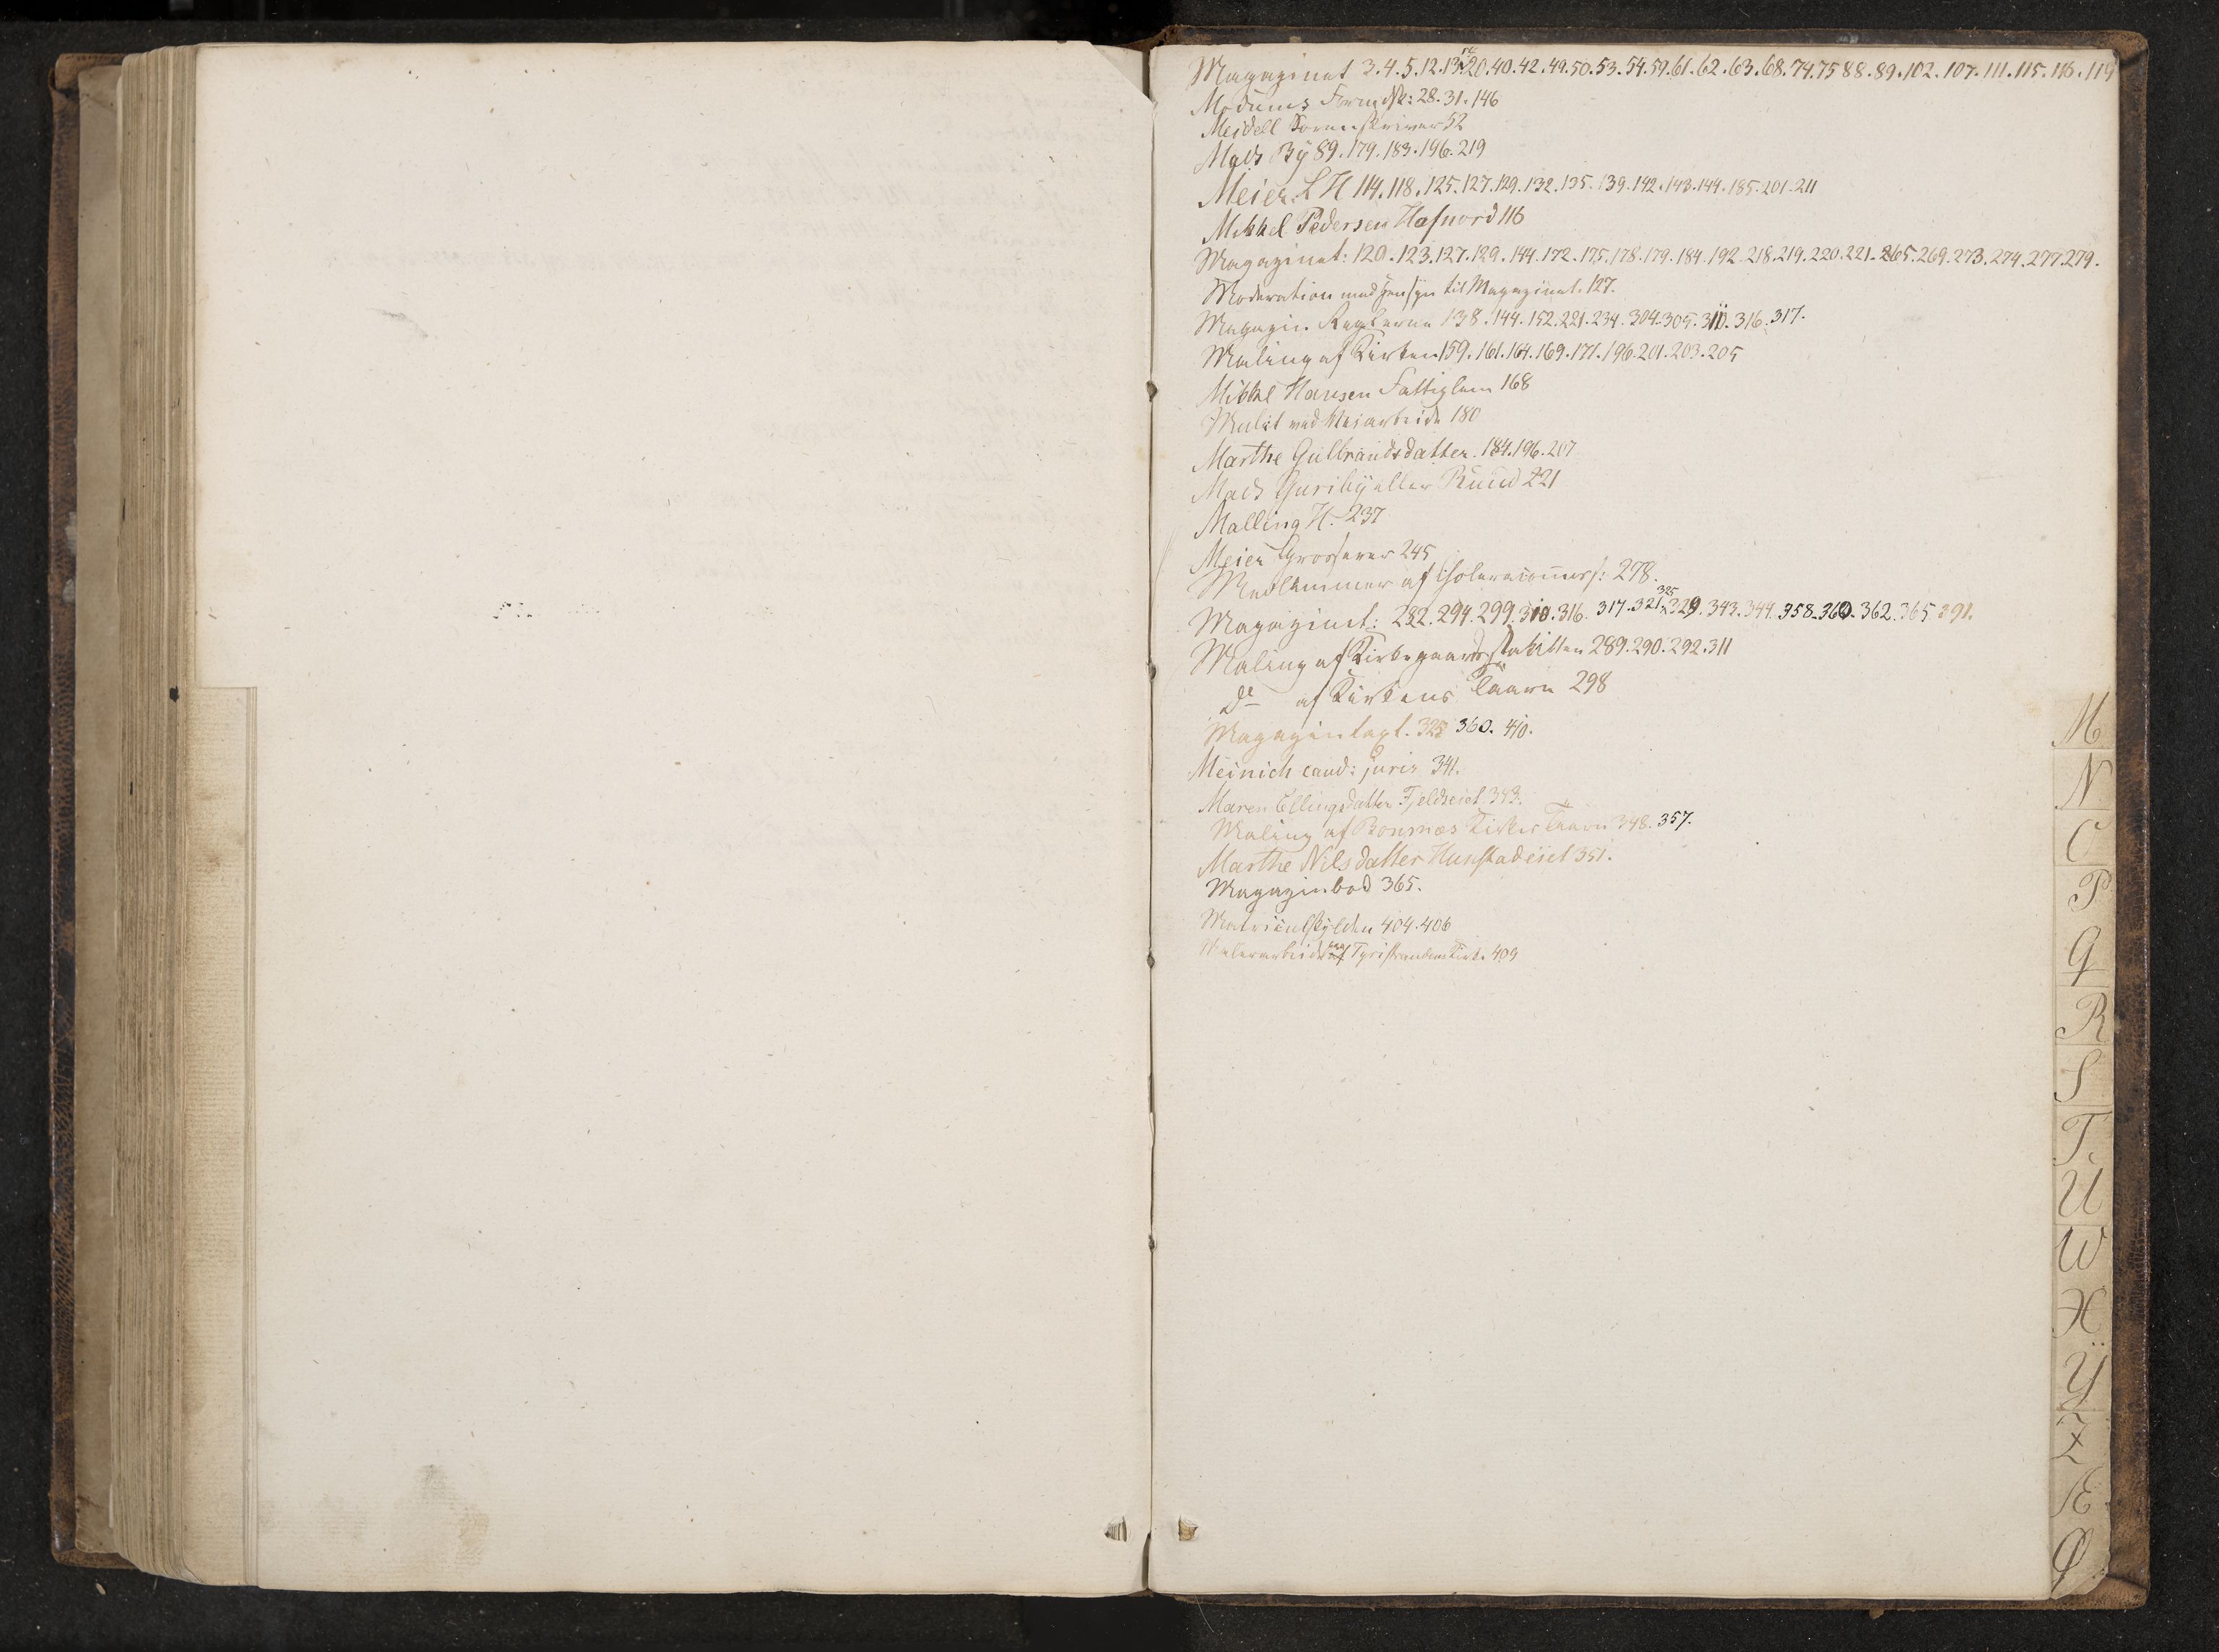 Magazinet 3.4.5.12.13.20.40.42.49.50.53.54.59.61.62.63.68.74.75 88.89.102.107.111.115.116.119
Modums Formdsk: 28.31.146
Meidell Sorenskriver 52
Mads By 89.179.183.196.219
Meier L H 114.118.125.127.129.132.135.139.142.143.144.185.201.211
Mikkel Pedersen Hafnord 116
Magazinet: 120.123.127.129.144.172.175.178.179.184.192.218.219.220.221.265.269.273.274.277.279.
Moderation med Hensyn til Magazinet. 127.
Magazin Reglerne 138.144.152.221.234.304.305.310.316.317.
Maling af Kirken 159.161.164.169.177.196.201.203.205
Mikkel Hansen Fattiglem 168
Mulct ved Veiarbeide 180
Marthe Gulbrandsdatter. 184.196.207
Mads Guriby eller Ruud 221
Malling H. 237
Meier Grosserer 245
Medlemmer af Choleracommss: 278.
Magazinet: 282.294.299.310.316. 317.321.325.329.343.344.358.360.362.365 391.
Maling af Kirkegaardsstakitten 289.290.292.311
Do af Kirkens Taarn 298
Magazintaxt. 325 360. 410.
Meinich cand: juris 341.
Maren Ellingsdatter Fjeldseiet 343.
Maling af Bønsnæs Kirkes Taarn 348. 357.
Marthe Nilsdatter Hunstadeiet 351.
Magazinbod 365.
Matriculskylden 404.406
Malerarbeide Tyristrandens Kirke. 409
M
N
O
P
Q
R
S
T
U
W
X
Y
Z
Æ
Ø